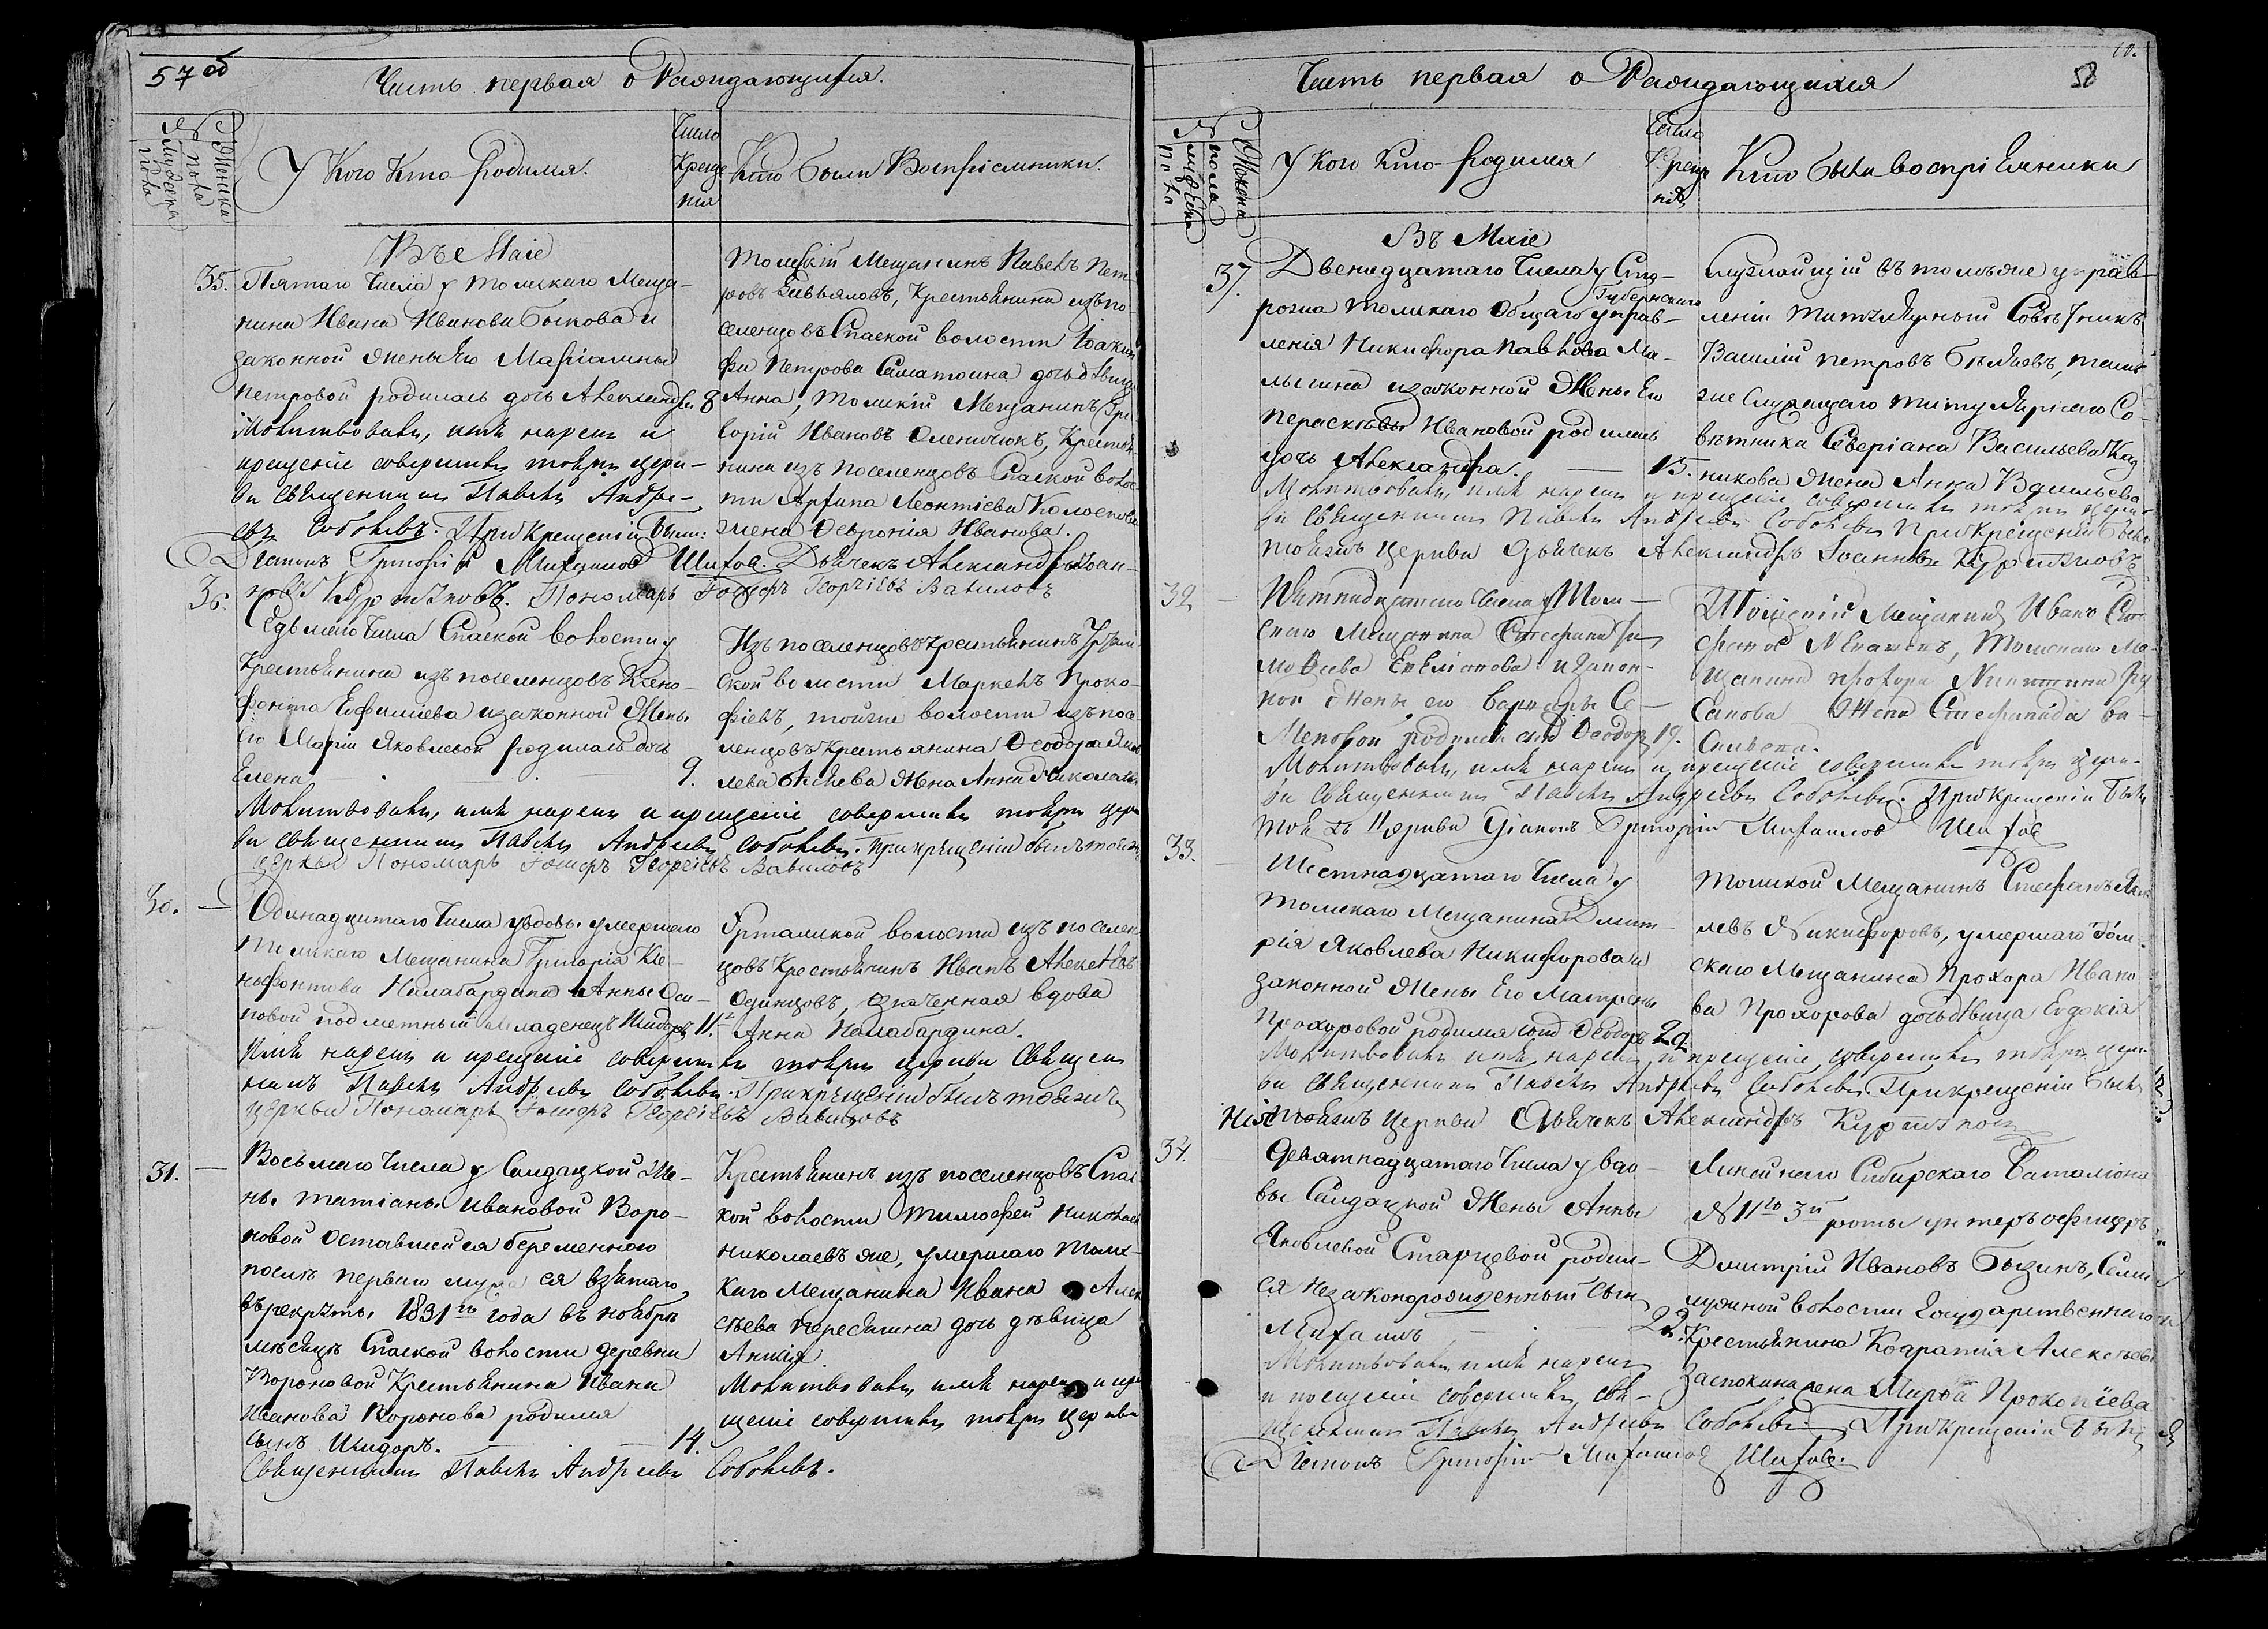 57 об
Часть первая о Раждающихся.
№ Мужеска пола
Женска пола
У Кого Кто Родился.
Число Крещения
Кто были Воспріемники.
Въ Маіе
35. Пятаго Числа у томскаго Меща-
нина Ивана Иванова Быкова и
законной жены Его Маріамны
петровой родилась дочь Александра 8
Молитвовалъ, имя нарекъ и
крещеніе совершилъ тояжъ церк-
ви Священникъ Павелъ Андре-
евъ Соболевъ. При Крещеніи были:
Діаконъ Григорій Михаиловъ Шиховъ. Дьячекъ Александръ Іоан-
новъ Курты́ковъ. Пономарь Георгіевъ Вавиловъ
Томскій Мещанинъ Павелъ Пет-
ровъ, Крестьянина изъ по-
селенцовъ Спаской волости Іоакин-
фа Петрова дочь девица
Анна, Томскій Мещанинъ Гри-
горій Ивановъ, Крестья-
нина изъ поселенцовъ Спаской волос-
ти Леонтіева
жена Феврония Иванова.
36. Седьмаго Числа Спаской волости у
Крестьянина изъ поселенцовъ Ксено-
фонта Ефиміева и законной Жены
Его Маріи Яковлевой родилась дочь
Елена 9.
Молитвовалъ, имя нарекъ и крещеніе совершилъ тояжъ церк
ви священникъ Павелъ Андреевъ Соболевъ. При крещеніи былъ тоежъ
церкви Пономарь Георгіевъ Вавиловъ
Изъ поселенцовъ крестьянинъ
ской волости Маркелъ Проко-
фіевъ, тойже волости изъ посе-
ленцовъ Крестьянина Феодора Яков
лева жена Анна Николаева
30. Одинадцатаго Числа у вдовы умершаго
Томскаго Мещанина Григорія Ксе-
нофонтова Анны Оси-
повой подметный младенецъ Исидоръ 11.
Имя нарекъ и крещеніе совершилъ тояжъ церкви Священ
никъ Павелъ Андреевъ Соболевъ. При крещеніи былъ тоежъ
церкви Пономарь Георгіевъ Вавиловъ
волости изъ поселен
цовъ Крестьянинъ Иванъ Алексеевъ
Одинцовъ, означенная вдова
Анна
31. Восьмаго Числа у Салдацкой Же-
ны Татіаны Ивановой Воро-
новой оставшейся беременною
послѣ перваго мужа ея взятаго
въ рекруты 1831го года въ ноябрѣ
мѣсяцѣ Спаской волости деревни
Вороновой Крестьянина Ивана
Иванова Воронова родился
сынъ Исидоръ. 14.
Священникъ Павелъ Андреевъ Соболевъ.
Крестьянинъ изъ поселенцовъ Спас
кой волости Тимофей Николаевъ
Николаевъ же, умершаго Томс-
каго Мещанина Ивана Алек
сѣева дочь дѣвица
Молитвовалъ имя нарекъ и кре
щеніе совершилъ тояжъ церкви
58
Часть первая о Раждающихся
№ Мужеска пола
Женска пола
У Кого Кто Родился
Число Крещенія
Кто были воспріемники
Въ Маіе
37. Двенадцатаго Числа у Сто-
рожа Томскаго Общаго Губернскаго управ-
ленія Никифора Павлова Ма-
лыгина и законной Жены Его
Перасковьи Ивановой родилась
дочь Александра. 15.
Молитвовалъ, имя нарекъ и крещеніе совершилъ тояжъ церк
ви Священникъ Павелъ Андреевъ Соболевъ При Крещеніи былъ
тоежъ церкви Дьячекъ Александръ Іоанновъ Куртыковъ
Служащій въ томъже управ-
леніи Титулярный Совѣтникъ
Василій Петровъ Бѣляевъ, тамъ
же Служащаго титулярнаго Со-
вѣтника Северіана Васильева
никова жена Анна Васильева
32. Пятнадцатаго Числа у Том-
скаго Мещанина Стефана
и закон-
ной жены его Варвары Се-
меновой родился сынъ Феодоръ 19.
Молитвовалъ, имя нарекъ и крещеніе совершилъ тояжъ церк-
ви Священникъ Павелъ Андреевъ Соболевъ. При Крещеніи былъ
тоя жъ Церкви Діаконъ Григорій Михаиловъ Шиховъ
Томскій Мещанинъ Иванъ Сте
фановъ, Томскаго Ме-
щанина Прохора
Жена Стефанида Ва-
сильева.
33. Шестнадцатаго Числа у
Томскаго Мещанина Дмит-
рія Яковлева Никифорова и
законной Жены Его Матрены
Прохоровой родился сынъ Феодоръ 22
Молитвовалъ имя нарекъ и крещеніе совершилъ тояжъ церк
ви Священникъ Павелъ Андреевъ Соболевъ. При крещеніи былъ
тоежъ церкви Дьячекъ Александръ Куртыковъ
Томской Мещанинъ Стефанъ Яков
левъ Никифоровъ, умершаго Том-
скаго Мещанина Прохора Ивано
ва Прохорова дочь дѣвица Евдокія
34. Девятнадцатаго Числа у вдо-
вы Салдацкой Жены Анны
Яковлевой Старцевой родил-
ся незаконорожденный сынъ
Михаилъ 22.
Молитвовалъ имя нарекъ
и крещеніе совершилъ Свя-
щенникъ Павелъ Андреевъ Соболевъ. При Крещеніи былъ
Діаконъ Григорій Михаиловъ Шиховъ.
Линейнаго Сибирскаго Баталіона
№ 11го 3й роты унтеръ офицеръ
Дмитрій Ивановъ Бызинъ, Семи
лужной волости Государственнаго
Крестьянина Кодратія Алексѣева
жена Марѳа Прокопіева